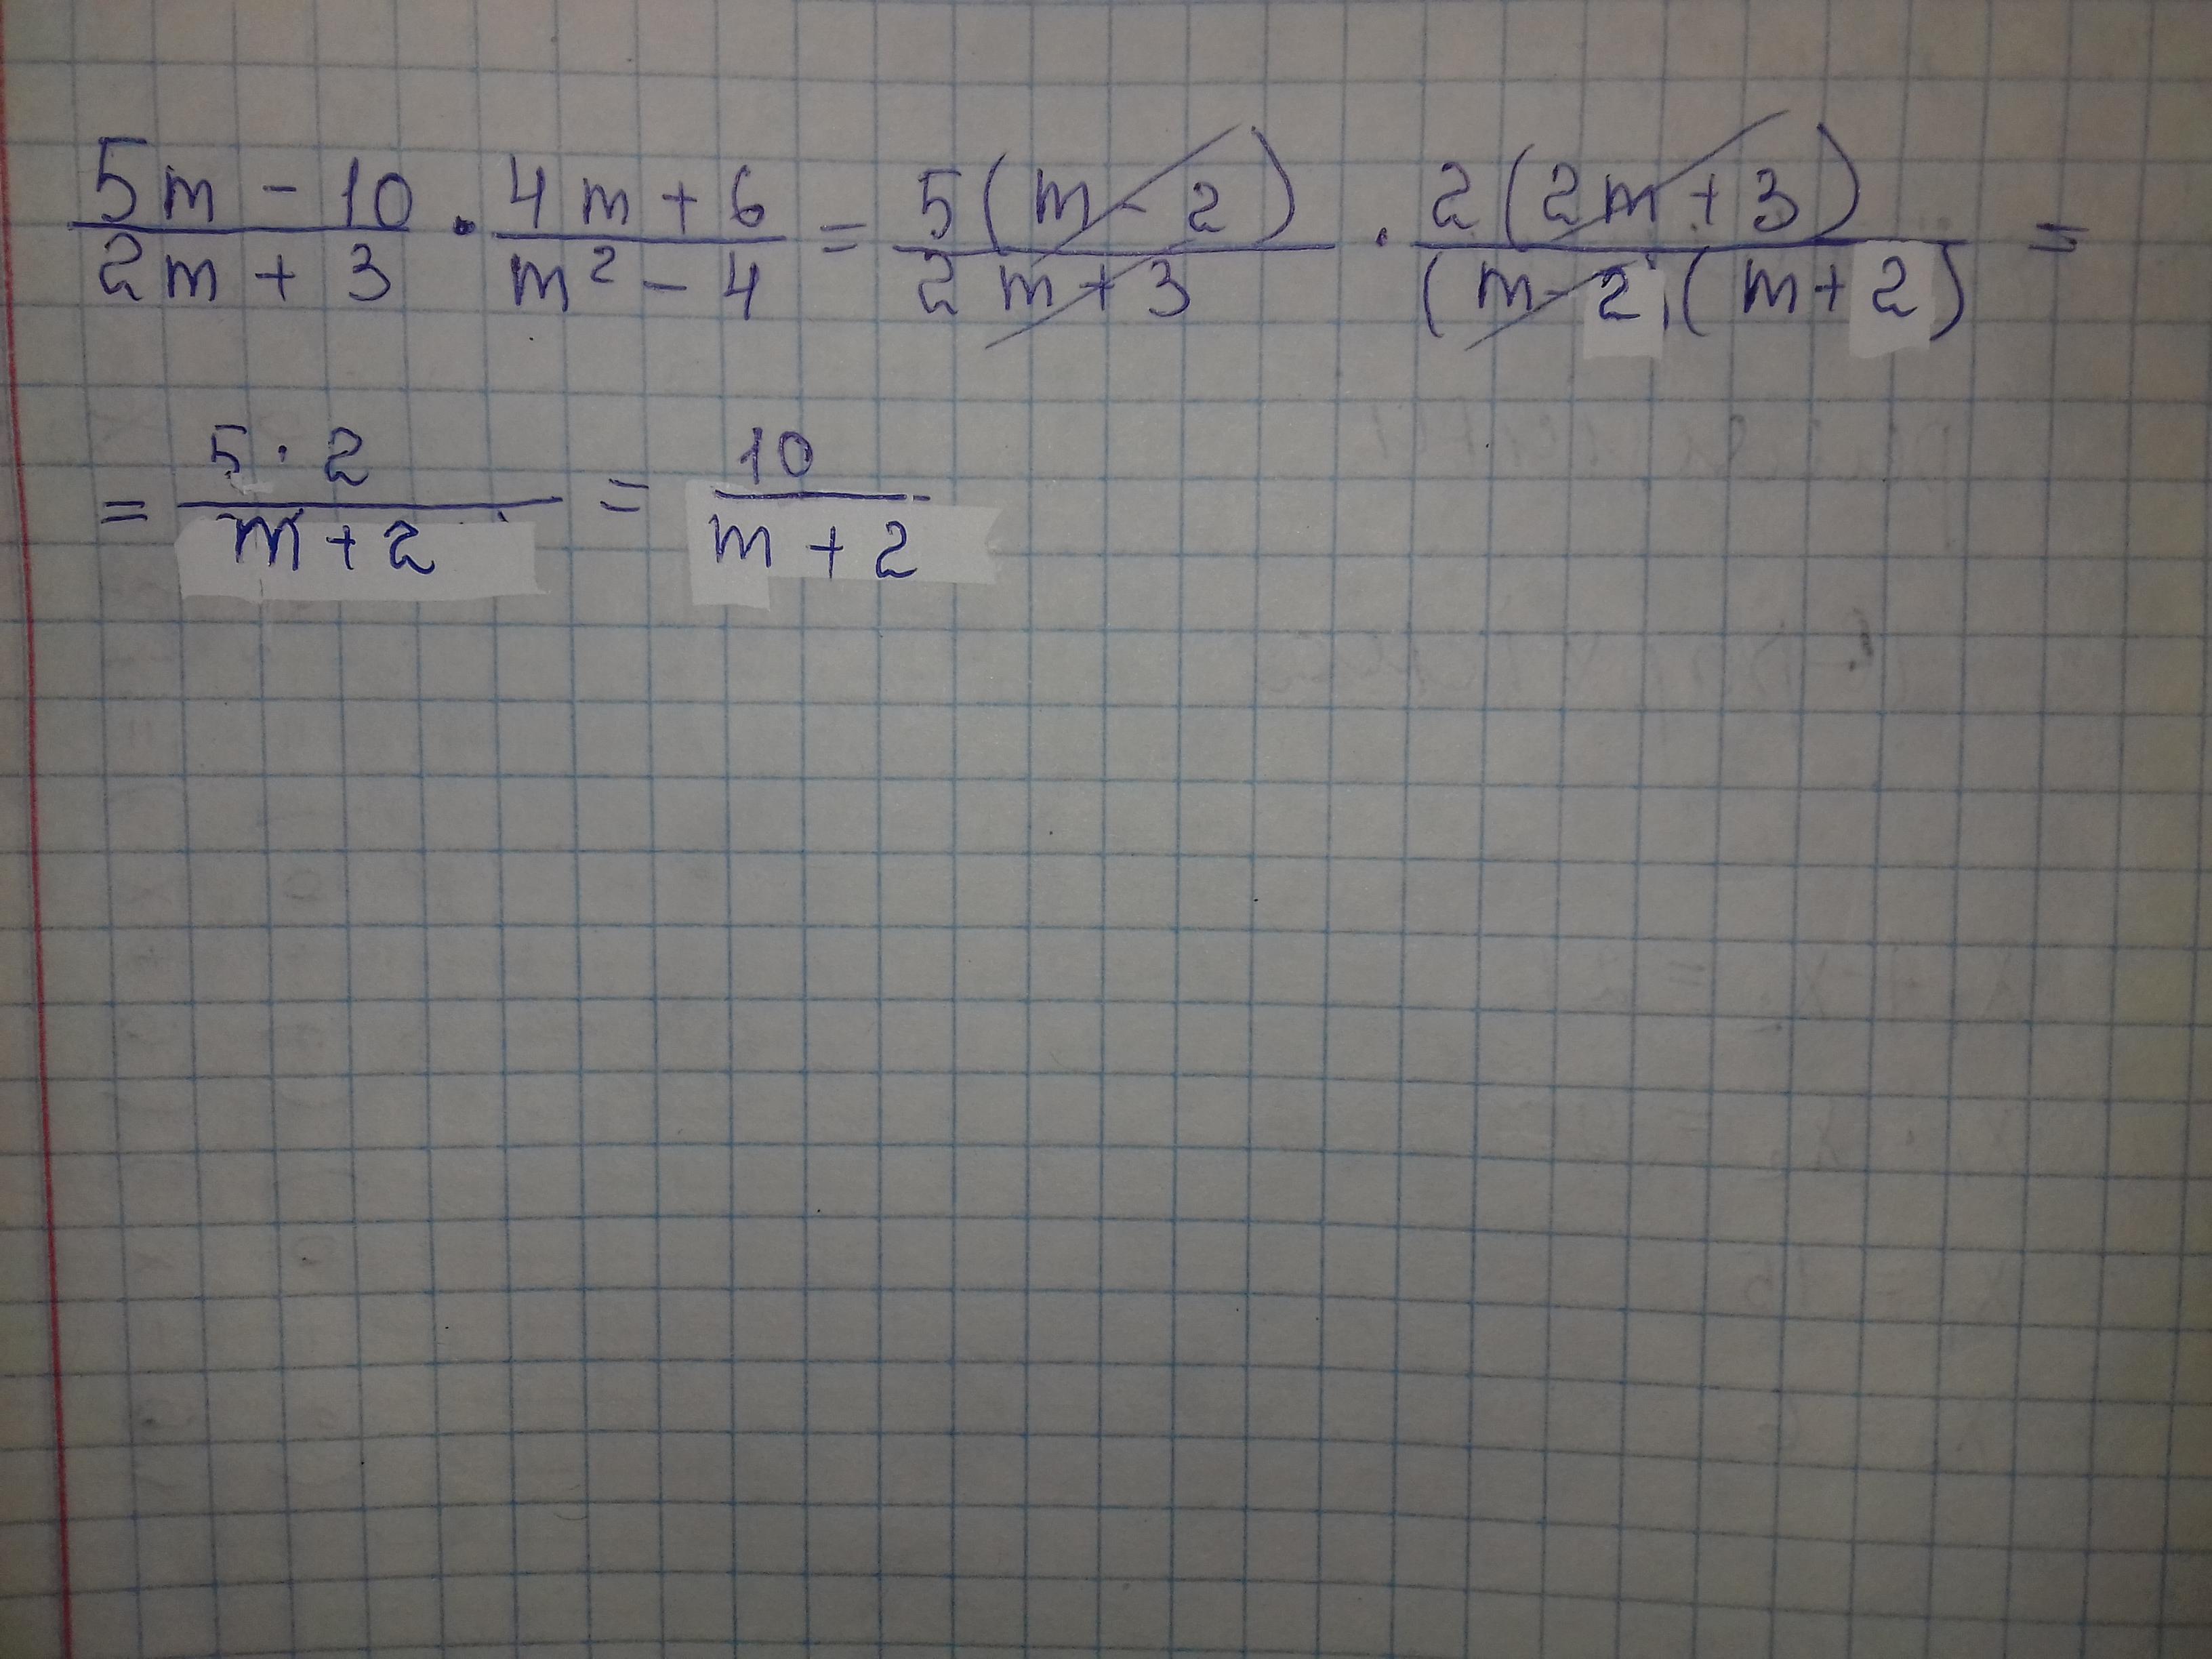 (5m - 10)/(2m + 3) · (4m + 6)/(m² - 4) = 5(m - 2)/(2m + 3) · 2(2m + 3)/((m - 2)(m + 2)) =
= (5 · 2)/(m + 2) = 10/(m + 2)